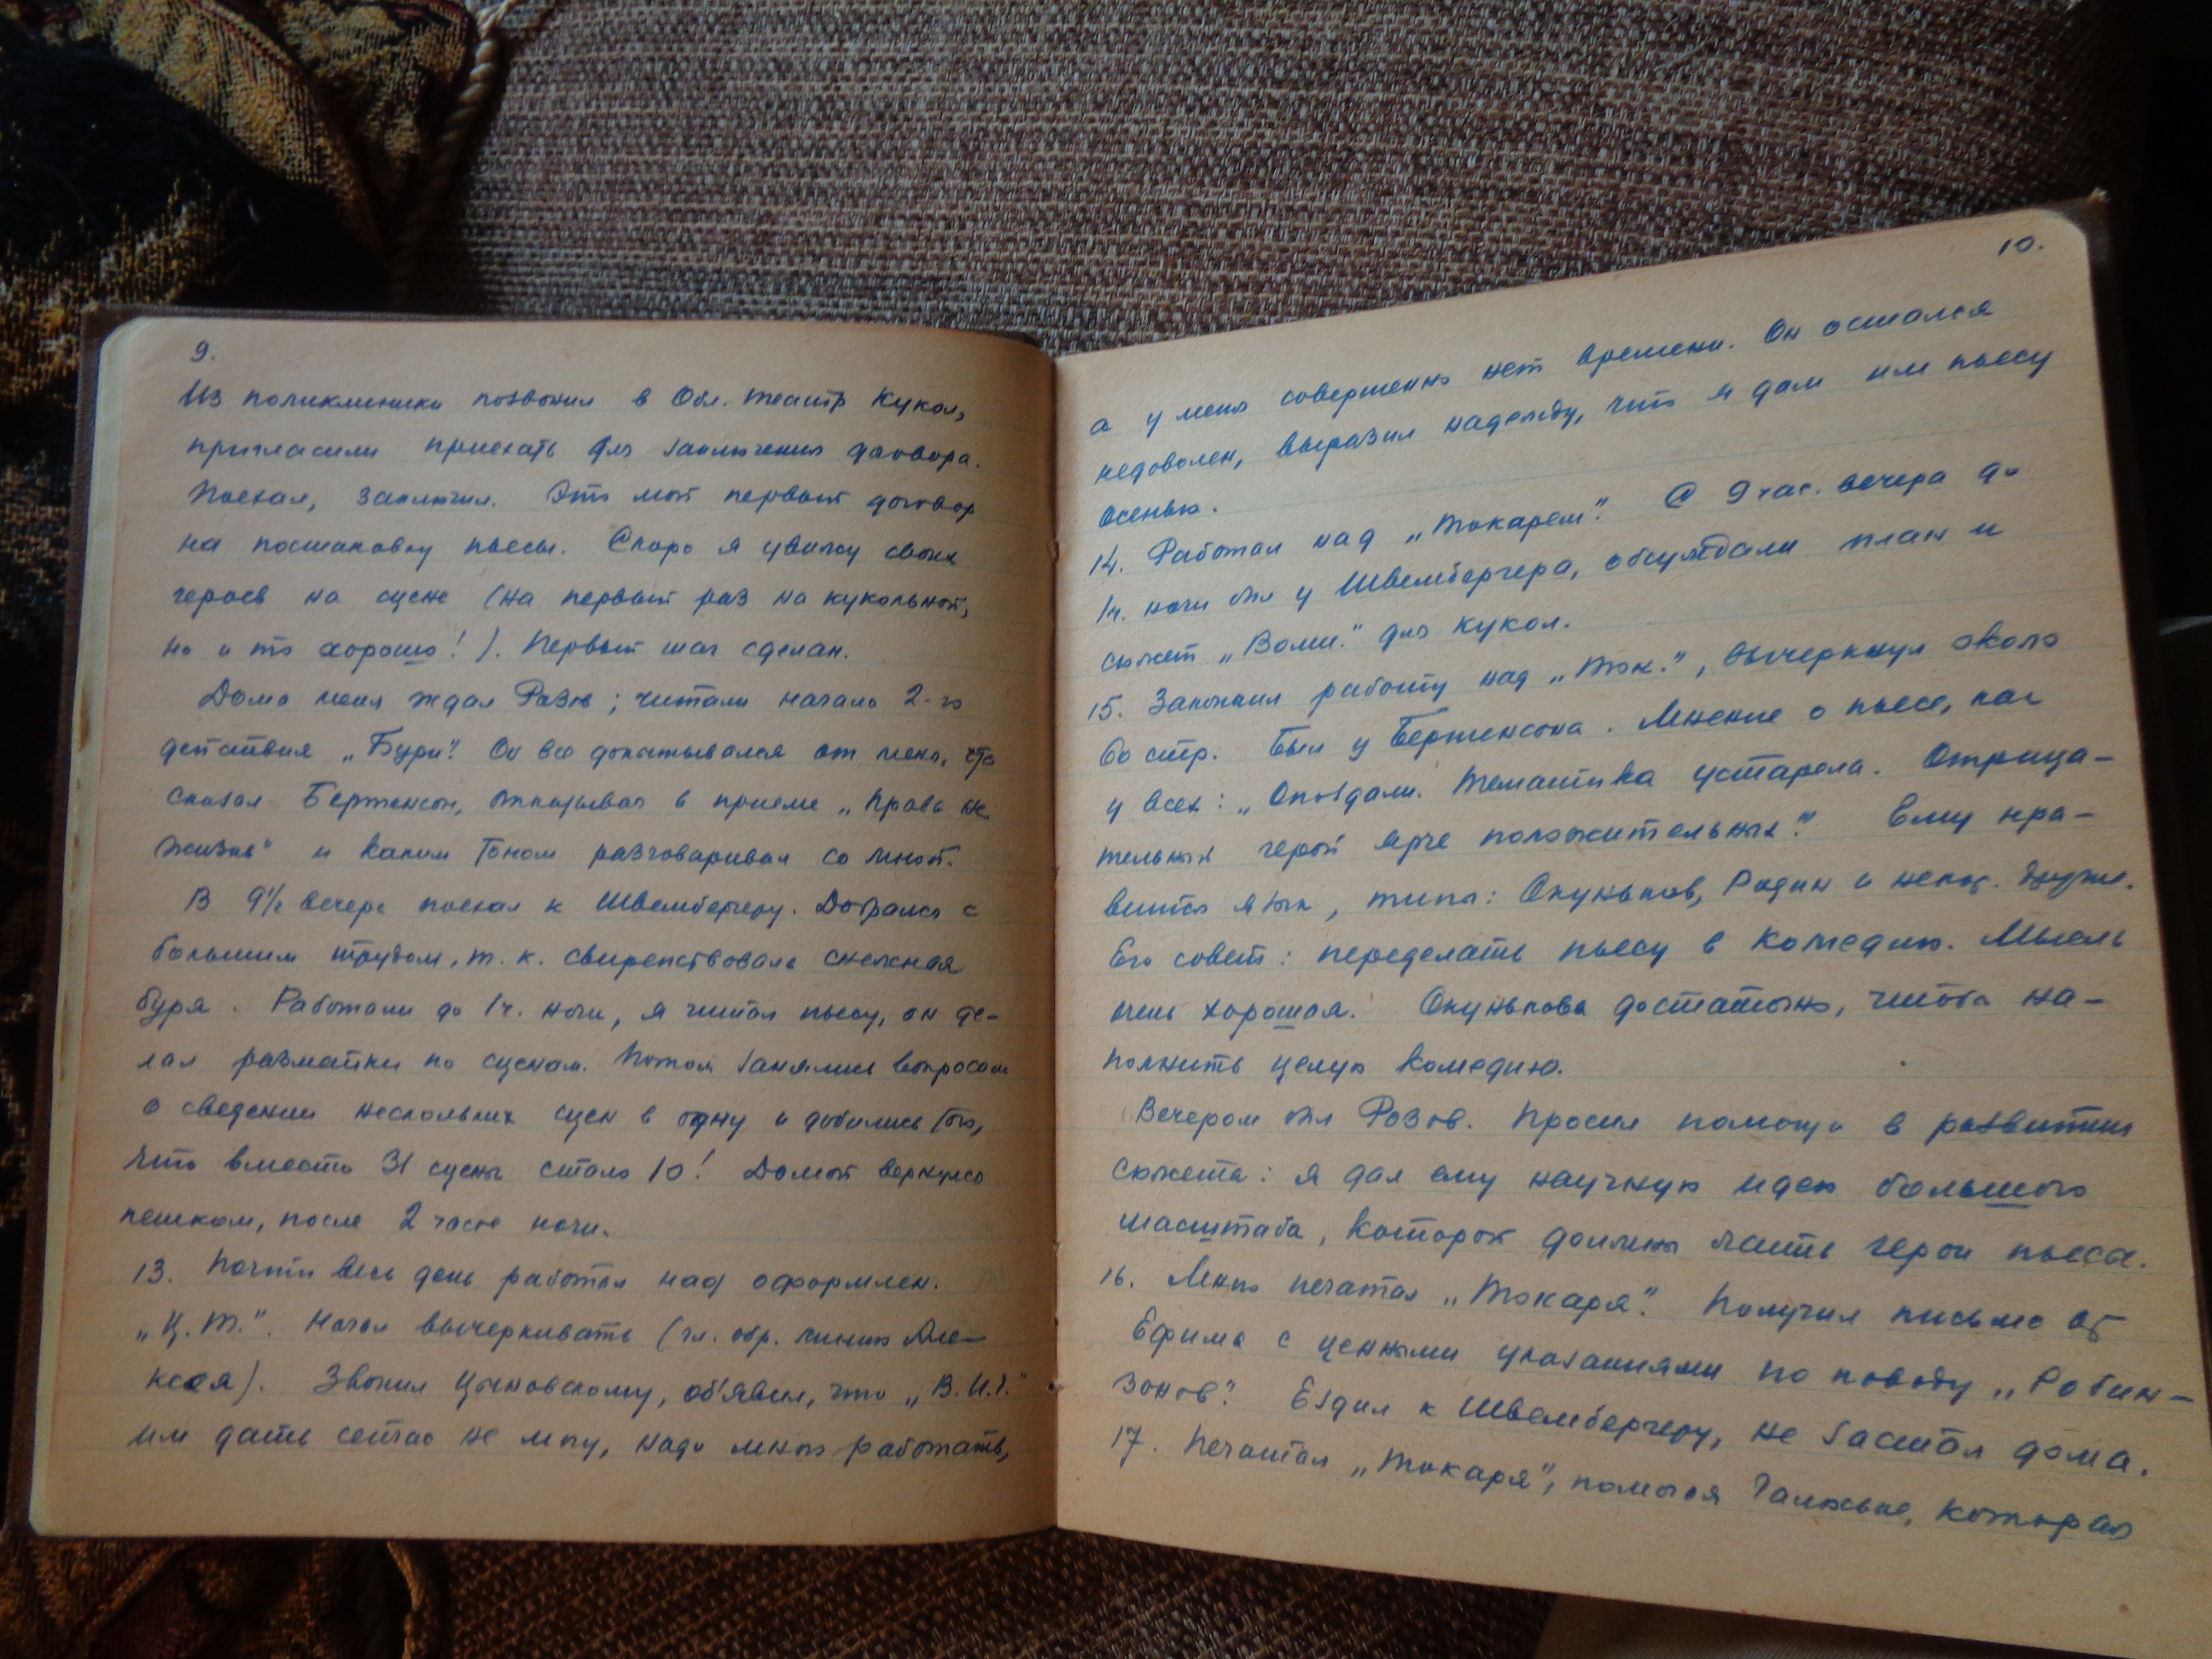 9.
Из поликлиники позвонил в Обл. театр Кукол,
пригласили приехать для заключения договора.
Поехал, заключил. Это мой первый договор
на постановку пьесы. Скоро я увижу своих
героев на сцене (на первый раз на кукольной,
но и то хорошо!). Первый шаг сделан.
Дома меня ждал Розов; читали начало 2-го
действия „Бури". Он все допытывался от меня, что
сказал Бертенсон, отказывая в приеме „Права на
жизнь" и каким тоном разговаривал со мной.
В 9½ вечера поехал к Швембергеру. Добрался с
большим трудом, т. к. свирепствовала снежная
буря. Работали до 1 ч. ночи, я читал пьесу, он де-
лал разметки по сценам. Потом занялись вопросом
о сведении нескольких сцен в одну и добились того,
что вместо 31 сцены стало 10! Домой вернулся
пешком, после 2 часов ночи.
13. Почти весь день работал над оформлен.
„Ч. Т.". Начал вычеркивать (гл. обр. линию Але-
ксея). Звонил Цыновскому, об'явил, что „В. И. Г."
им дать сейчас не могу, надо много работать,
10.
а у меня совершенно нет времени. Он остался
недоволен, выразил надежду, что я дам им пьесу
осенью.
14. Работал над „Токарем". С 9 час. вечера до
1 ч. ночи был у Швембергера, обсуждали план и
сюжет „Волш." для кукол.
15. Закончил работу над „Ток.", вычеркнул около
60 стр. Был у Бертенсона. Мнение о пьесе, как
у всех: „Опоздали. Тематика устарела. Отрица-
тельный герой ярче положительных". Ему нра-
вится язык, типы: Окуньков, Родин и некот. другие.
Его совет: переделать пьесу в комедию. Мысль
очень хорошая. Окунькова достаточно, чтобы на-
полнить целую комедию.
Вечером был Розов. Просил помощи в развитии
сюжета: я дал ему научную идею большого
масштаба, которой должны жить герои пьесы.
16. Много печатал „Токаря". Получил письмо от
Ефима с ценными указаниями по поводу „Робин-
зонов". Ездил к Швембергеру, не застал дома.
17. Печатал „Токаря", помогая Галюське, которая